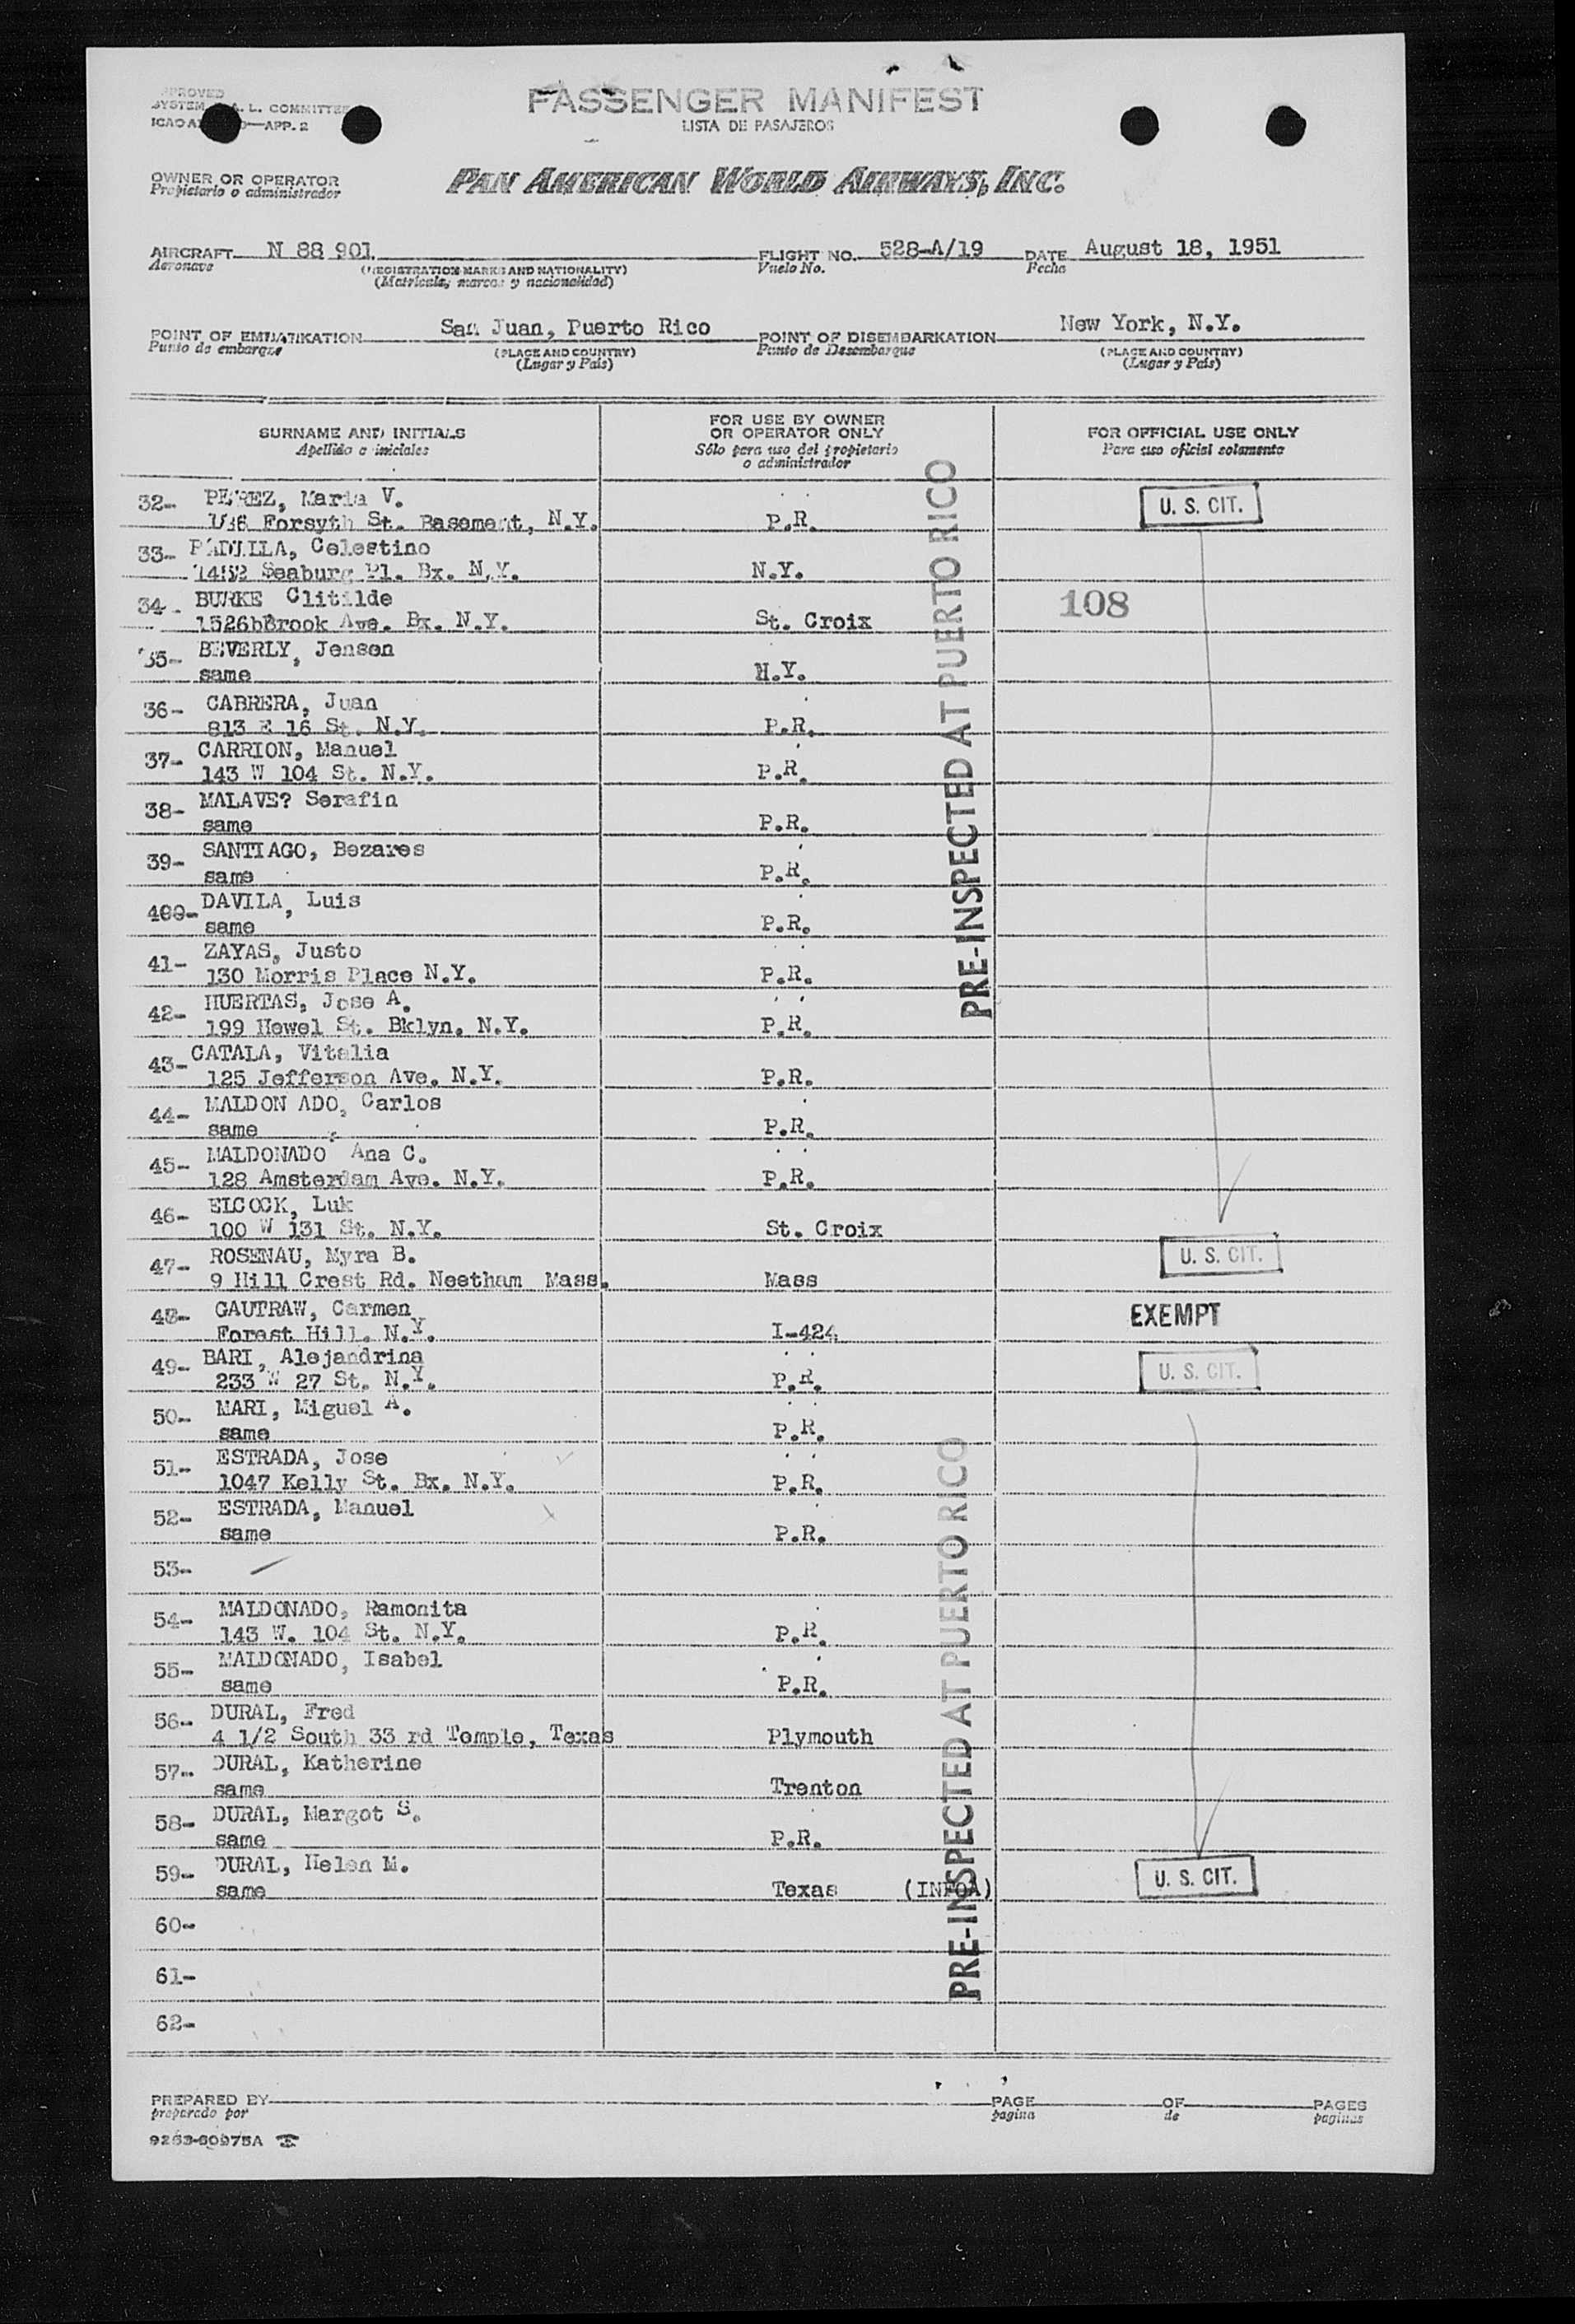 PASSENGER MANIFEST
LISTA DE PASAJEROS
APPROVED
SYSTEM A. L. COMMITTEE
APP. 2
OWNER OR OPERATOR
Propietario o administrador
PAN AMERICAN WORLD AIRWAYS, INC.
AIRCRAFT N 88 901 FLIGHT NO. 528-A/19 DATE August 18, 1951
Aeronave (REGISTRATION MARKS AND NATIONALITY) Vuelo No. Fecha
(Matricula, marcas y nacionalidad)
POINT OF EMBARKATION San Juan, Puerto Rico POINT OF DISEMBARKATION New York, N.Y.
Punto de embarque (PLACE AND COUNTRY) Punto de Desembarque (PLACE AND COUNTRY)
(Lugar y País) (Lugar y País)
SURNAME AND INITIALS
Apellido e iniciales
FOR USE BY OWNER
OR OPERATOR ONLY
Sólo para uso del propietario
o administrador
FOR OFFICIAL USE ONLY
Para uso oficial solamente
32- PEREZ, Maria V. U. S. CIT.
Forsyth St. Basement, N.Y. P.R.
33- PADILLA, Celestino
1452 Seaburg Pl. Bx. N.Y. N.Y.
34- BURKE Clitilde 108
1526bBrook Ave. Bx. N.Y. St. Croix
35- BEVERLY, Jensen
same N.Y.
36- CABRERA, Juan
813 E 16 St. N.Y. P.R.
37- CARRION, Manuel
143 W 104 St. N.Y. P.R.
38- MALAVE? Serafin
same P.R.
39- SANTIAGO, Bezares
same P.R.
DAVILA, Luis
same P.R.
41- ZAYAS, Justo
130 Morris Place N.Y. P.R.
42- HUERTAS, Jose A.
199 Hewel St. Bklyn. N.Y. P.R.
43- CATALA, Vitalia
125 Jefferson Ave. N.Y. P.R.
44- MALDON ADO, Carlos
same P.R.
45- MALDONADO Ana C.
128 Amsterdam Ave. N.Y. P.R.
46- ELCOCK, Luk
100 W 131 St. N.Y. St. Croix
47- ROSENAU, Myra B. U. S. CIT.
9 Hill Crest Rd. Neetham Mass. Mass
48- GAUTRAW, Carmen EXEMPT
Forest Hill. N.Y. I-424
49- BARI, Alejandrina U. S. CIT.
233 W 27 St. N.Y. P.R.
50- MARI, Miguel A.
same P.R.
51- ESTRADA, Jose
1047 Kelly St. Bx. N.Y. P.R.
52- ESTRADA, Manuel
same P.R.
53-
54- MALDONADO, Ramonita
143 W. 104 St. N.Y. P.R.
55- MALDONADO, Isabel
same P.R.
56- DURAL, Fred
4 1/2 South 33 rd Temple, Texas Plymouth
57- DURAL, Katherine
same Trenton
58- DURAL, Margot S.
same P.R.
59- DURAL, Helen M. U. S. CIT.
same Texas (INFOA)
60-
61-
62-
PRE-INSPECTED AT PUERTO RICO
PRE-INSPECTED AT PUERTO RICO
PREPARED BY PAGE OF PAGES
preparado por pagina de paginas
9263-60975A